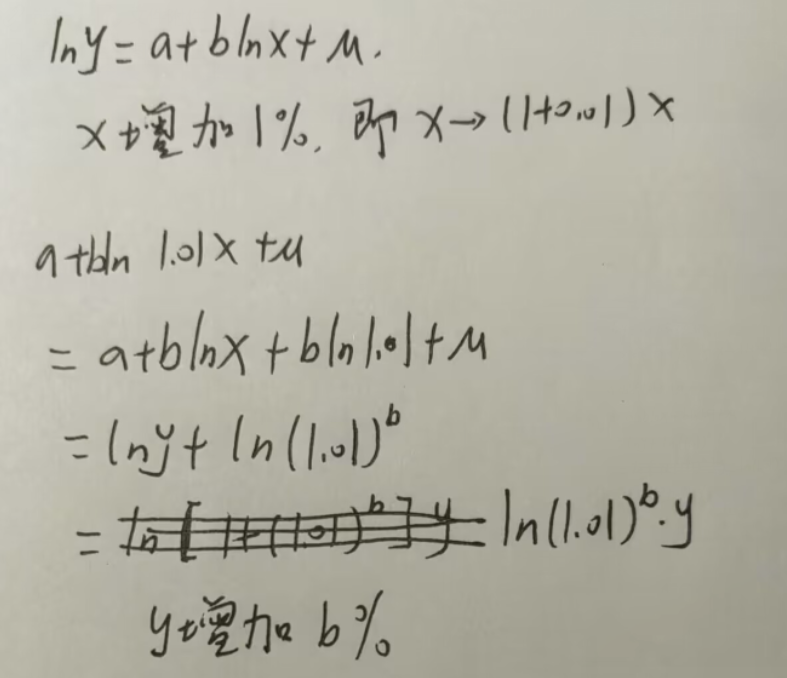 lny = a + b lnx + μ.
x 增加 1%, 即 x → (1+0.01) x
a + bln 1.01x + μ
= a + b lnx + b ln1.01 + μ
= lny + ln(1.01)^b
= ln(1.01)^b · y
y 增加 b%